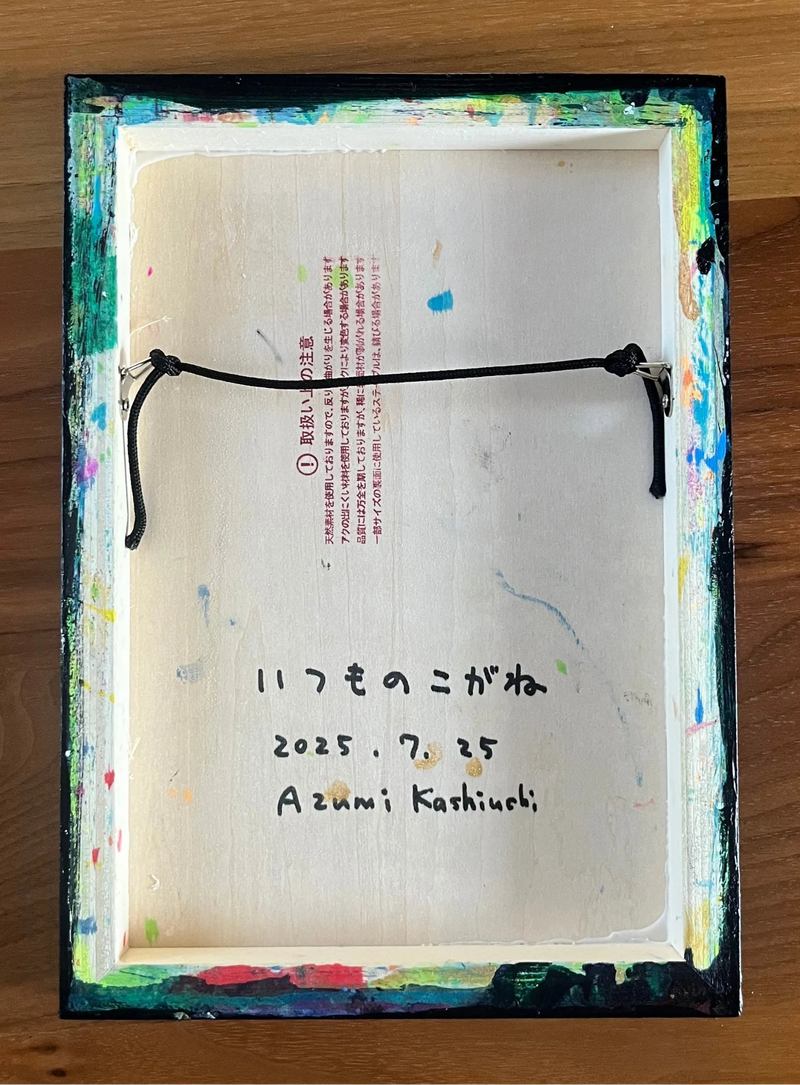 取扱い上の注意
天然素材を使用しておりますので、反り、曲がりを生じる場合があります
アクの出にくい材料を使用しておりますが、アクにより変色する場合があります
品質には万全を期しておりますが、稀に面材が剥がれる場合があります
一部サイズの裏面に使用しているステープルは、錆びる場合があります
いつものこがね
2025.7.25
Azumi Kashiuchi